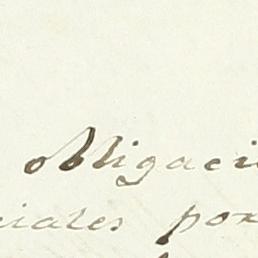 Obligaci
ciales por